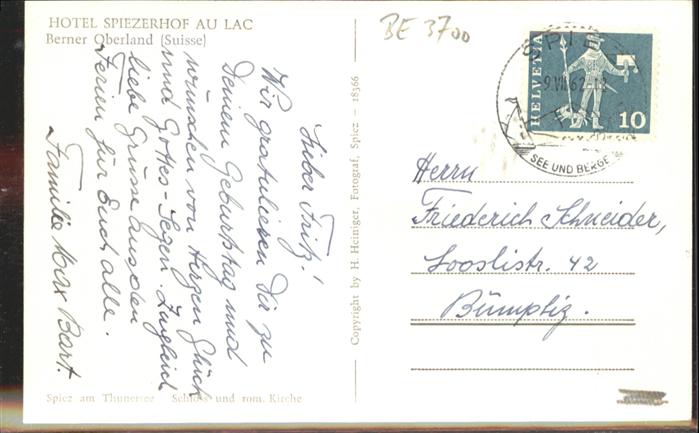 HOTEL SPIEZERHOF AU LAC
Berner Oberland (Suisse)
BE 3700
Lieber Fritz!
Wir gratulieren Dir zu
Deinem Geburtstag und
wünschen von Herzen Glück
und Gottes-Segen. Zugleich
liebe Grüsse aus den
Ferien für Euch alle.
Familie Max Bart.
Spiez am Thunersee Schloss und rom. Kirche
Copyright by H. Heiniger, Fotograf, Spiez – 18366
HELVETIA
10
SPIEZ
9.VII.62-12
SEE UND BERGE
Herrn
Friederich Schneider,
Looslistr. 42
Bümpliz.